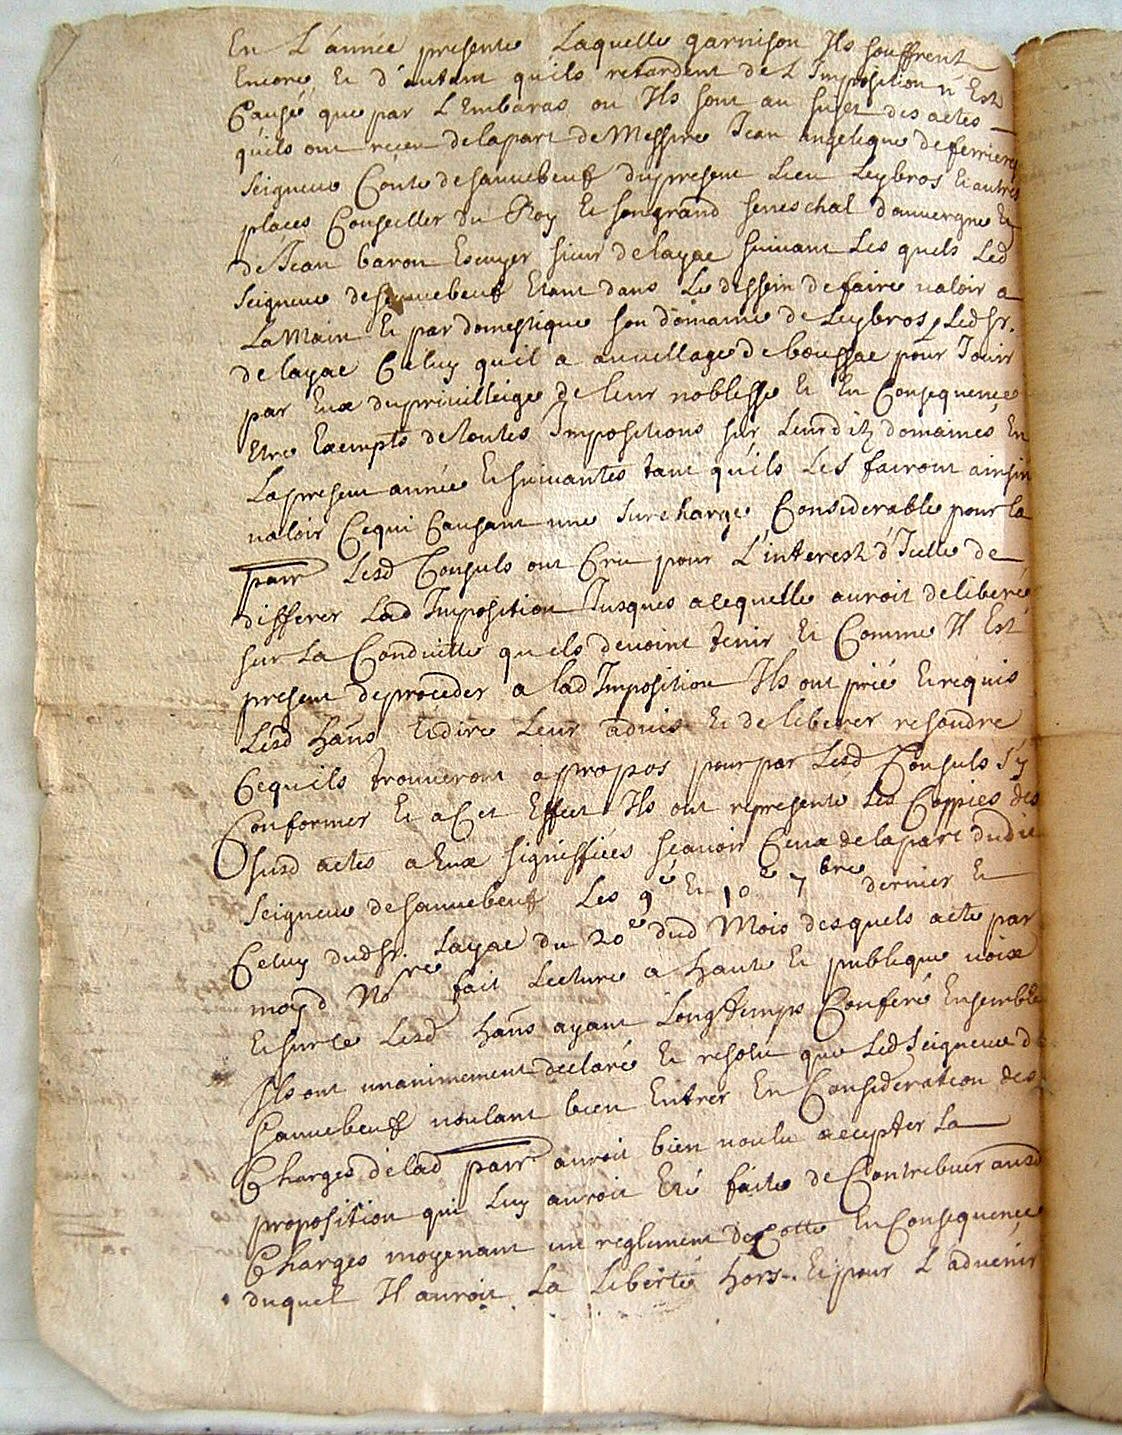 En L'année presente Laquelle garnison Ils souffrent
Encore, Et d'autant quils retardent de L Imposition n'Est
Causé que par L Embaras ou Ils sont au sujet des actes
quils ont reçeu delapart de Messire Jean angelique deferrieres
Seigneur Conte desauuebeuf dupresent Lieu Leybros Et autres
places Conseiller du Roy Et songrand seneschal dauuergne Et
de Jean baron Escuyer sieur delayac suiuant Les quels Led
Seigneur desauuebeuf Etant dans Le dessein defaire ualoir a
La Main Et par domestique son domaine de Leybros, Led Sr.
delayac Celuy quil a auuillage de boussac pour Jouir
par Eux dupriuilleige de leur noblesse Et En Consequence
Etre Exempts detoutes Impositions sur Leurd itz domaines En
Lapresent année Et suiuantes tant quils Les fairont ainsin
ualoir Cequi Causant une surcharge Considerable pour la
parr Lesd Consuls ont Creu pour L'interest d'Icelle de
differer Lad Imposition Jusques acequelle auroit deliberé
sur La Conduitte quils deuoint tenir Et Comme Il Est
present deproceder a lad Imposition Ils ont prié Et requis
Lesd hãns Et dire Leur aduis Et de liberer resoudre
Cequils trouueront apropos pourpar Lesd Consuls s'y
Conformer Et aCet Effect Ils ont representé Les Coppies des
susd actes a Eux signiffiées sçauoir Ceux delapart dudit
Seigneur desauuebeuf Les 9e Et 10e 7bre dernier Et
Celuy dudSr. Layac du 20e dud Mois desquels acte par
moyd Nore fait Lecture a haute Et publique uoix
Et surce Lesd hãns ayant Longtemps Conferé Ensemble
Ils ont unanimement declaré Et resolu que Led Seigneur de
Sauuebeuf uoulant bien Entrer En Consideration des
Charges delad parr auroit bien uoulu accepter La
proposition qui Luy auroit Eté faite de Contribuer ausd
Charges moyenant un reglement de Cotte En Consequence
duquel Il auroit La Liberté hors. Et pour L aduenir